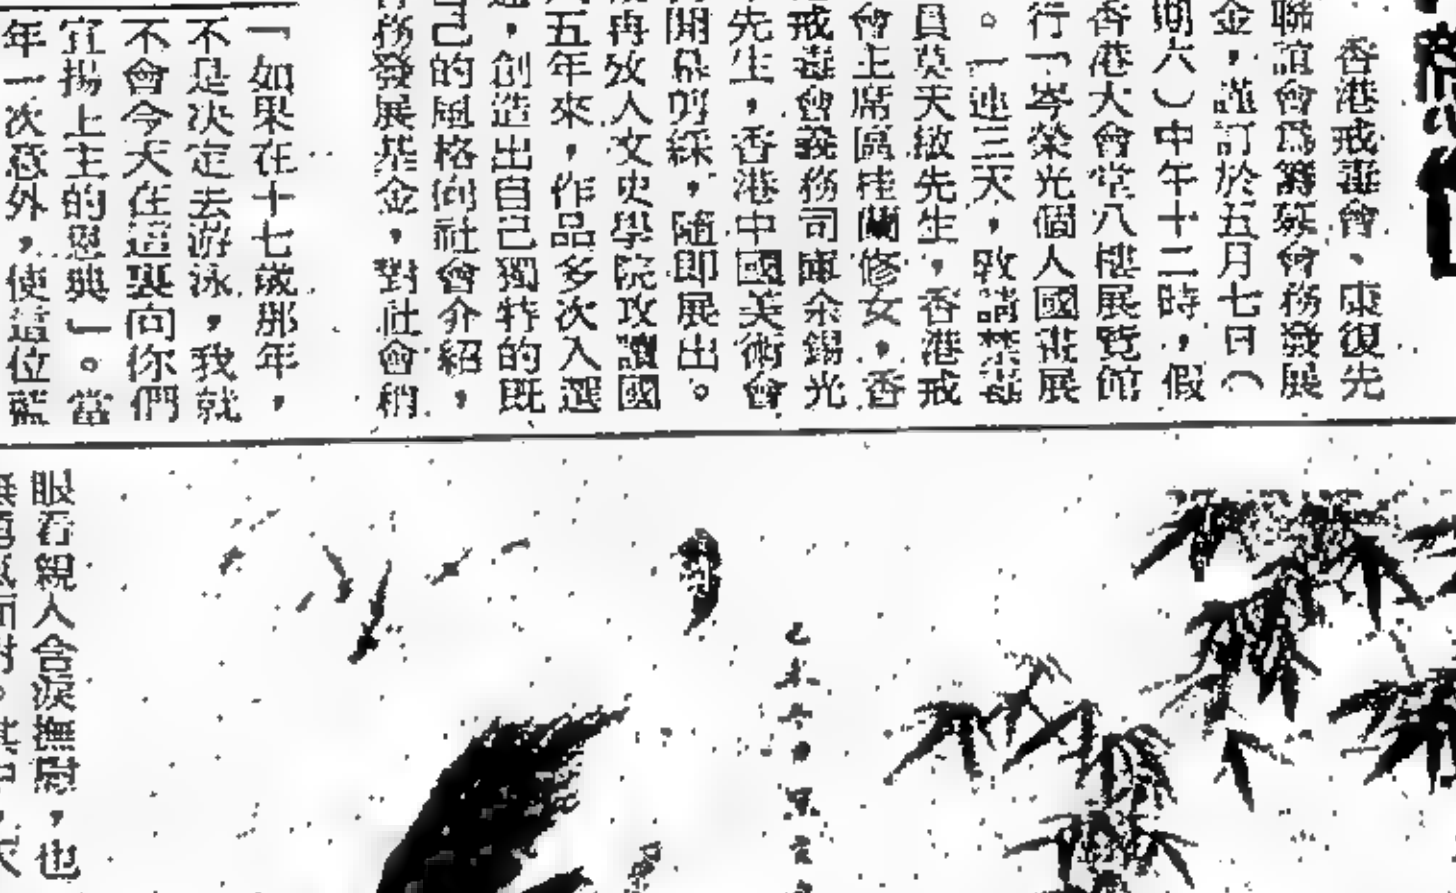 香港戒毒會、康復先
聯誼會爲籌募會務發展
金，謹訂於五月七日（
期六）中午十二時，假
香港大會堂八樓展覽館
行「岑榮光個人國畫展
。一連三天，敦請禁毒
員莫天敏先生，香港戒
會主席區桂蘭修女，香
戒毒會義務司庫余錫光
先生，香港中國美術會
開幕剪綵，隨即展出。
再攻人文史學院攻讀國
五年來，作品多次入選
，創造出自己獨特的既
己的風格向社會介紹，
務發展基金，對社會稍
「如果在十七歲那年，
不是決定去游泳，我就
不會今天在這裏向你們
宣揚上主的恩典」。當
年一次意外，使這位藍
眼看親人含淚撫慰，也
乙未